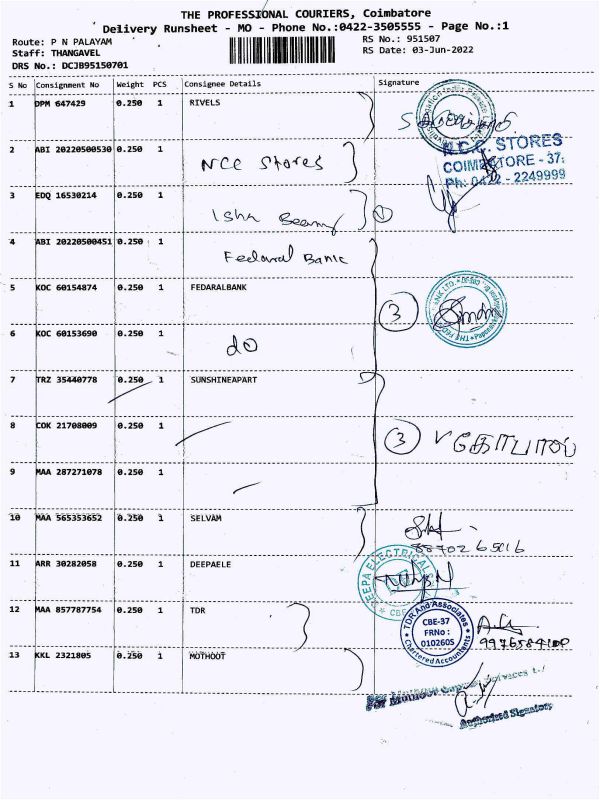 THE PROFESSIONAL COURIERS, Coimbatore
Delivery Runsheet - MO - Phone No.:0422-3505555 - Page No.:1
Route: P N PALAYAM
RS No.: 951507
Staff: THANGAVEL
RS Date: 03-Jun-2022
DRS No.: DCJB95150701
S No Consignment No Weight PCS Consignee Details Signature
1 DPM 647429 0.250 1 RIVELS
2 ABI 20220500530 0.250 1 NCC Stores
N.C.C. STORES
COIMBATORE - 37.
Ph: 0422 - 2249999
3 EDQ 16530214 0.250 1 Isha ①
4 ABI 20220500451 0.250 1 Fedaral Bank
5 KOC 60154874 0.250 1 FEDARALBANK
3
6 KOC 60153690 0.250 1 do
7 TRZ 35440778 0.250 1 SUNSHINEAPART
8 COK 21708009 0.250 1
3
9 MAA 287271078 0.250 1
10 MAA 565353652 0.250 1 SELVAM
11 ARR 30282058 0.250 1 DEEPAELE
DEEPA ELECTRICALS
12 MAA 857787754 0.250 1 TDR
TDR And Associates
CBE-37
FRNo :
010260S
Chartered Accountants
13 KKL 2321805 0.250 1 MOTHOOT
Authorised Signatory